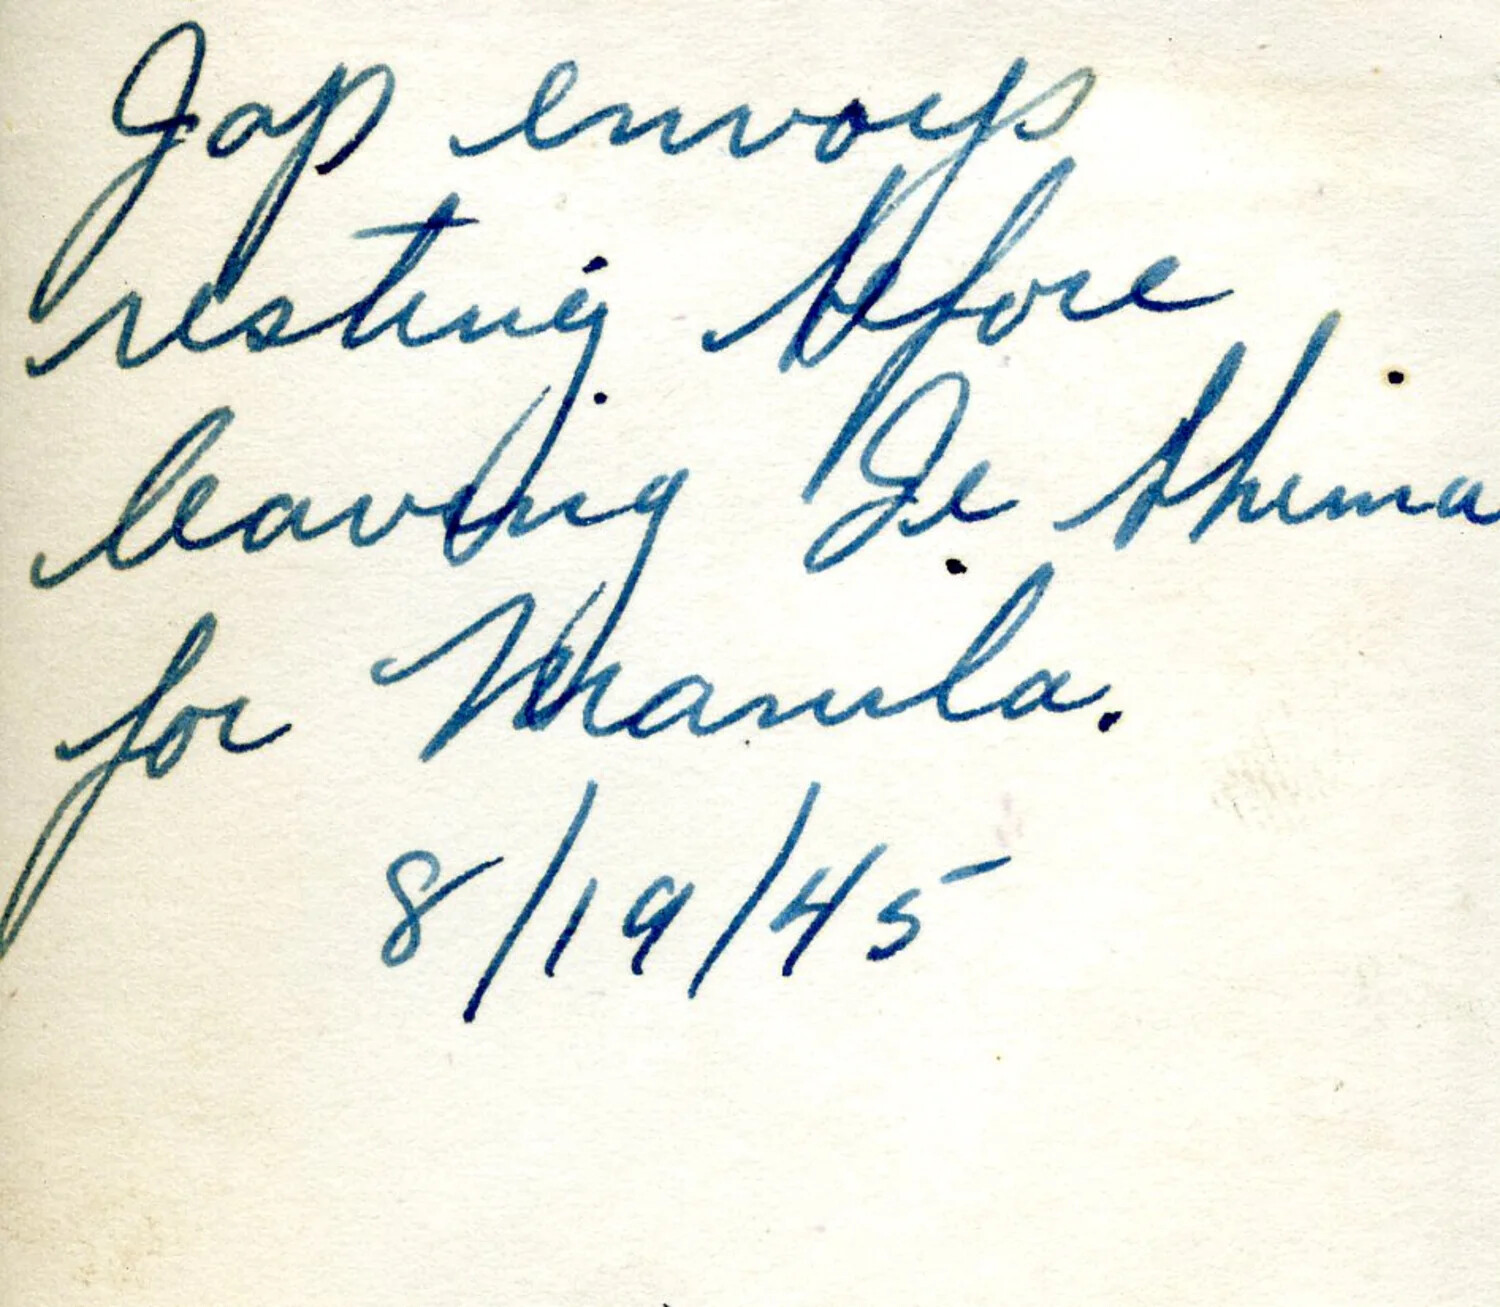 Jap envoys
resting before
leaving Ie Shima
for Manila.
8/19/45